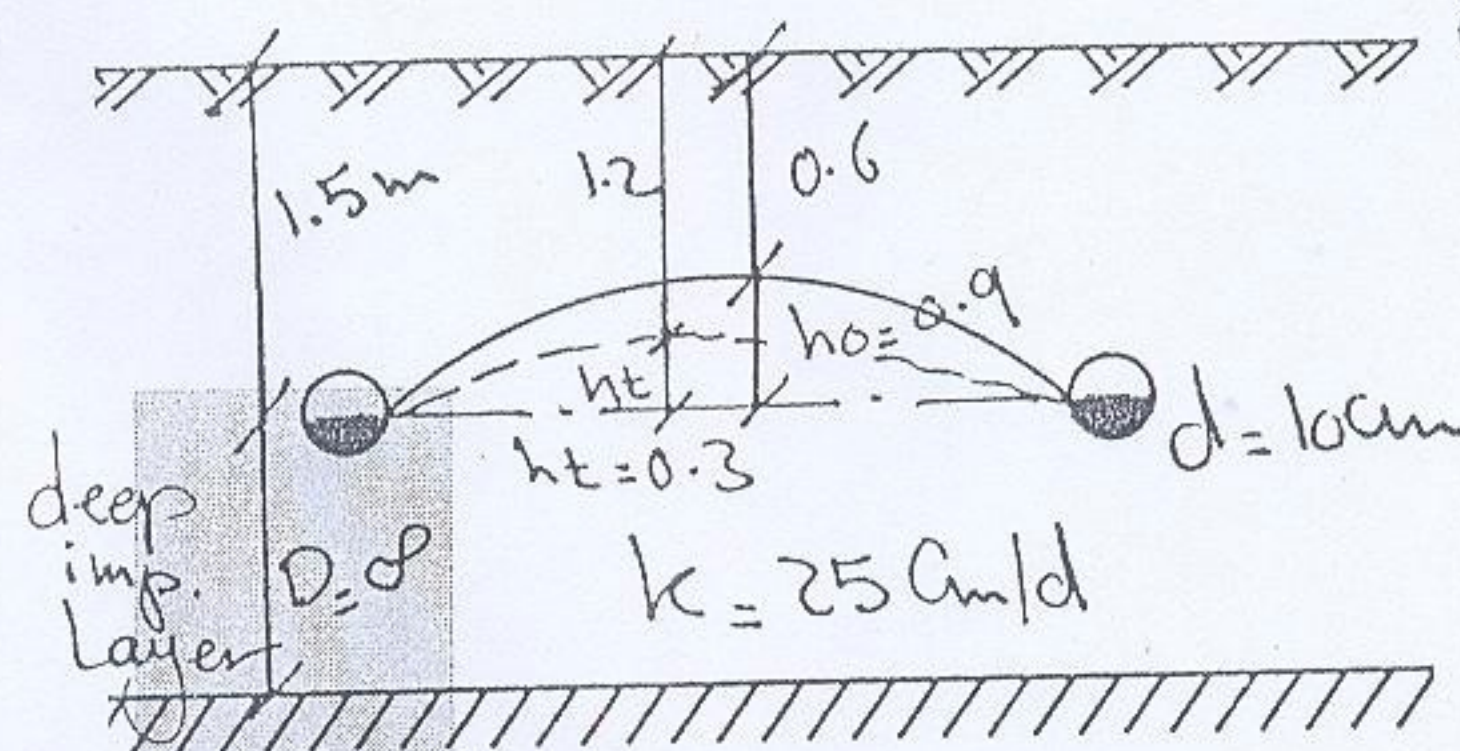 1.5m
1.2
0.6
ho=0.9
ht
ht=0.3
d=10cm
deep
imp.
Layer
D=∞
k=25 Cm/d